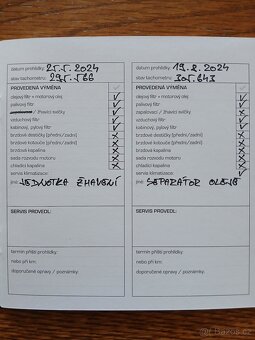 datum prohlídky: 25.5.2024
stav tachometru: 295.566
PROVEDENÁ VÝMĚNA ✓
olejový filtr + motorový olej ✓
palivový filtr ✓
/ žhavicí svíčky ✓
vzduchový filtr ✓
kabinový, pylový filtr ✓
brzdové destičky (přední/zadní) ✗
brzdové kotouče (přední/zadní) ✗
brzdová kapalina ✗
sada rozvodu motoru ✗
chladicí kapalina ✗
servis klimatizace
jiné: JEDNOTKA ŽHAVENÍ
SERVIS PROVEDL:
termín příští prohlídky:
nebo při km:
doporučené opravy / poznámky:
datum prohlídky: 19.2.2024
stav tachometru: 305.643
PROVEDENÁ VÝMĚNA ✓
olejový filtr + motorový olej ✓
palivový filtr ✓
zapalovací / žhavicí svíčky ✗
vzduchový filtr ✓
kabinový, pylový filtr ✓
brzdové destičky (přední/zadní) ✗
brzdové kotouče (přední/zadní) ✗
brzdová kapalina ✗
sada rozvodu motoru ✗
chladicí kapalina ✗
servis klimatizace ✓
jiné: SEPARÁTOR OLEJE
SERVIS PROVEDL:
termín příští prohlídky:
nebo při km:
doporučené opravy / poznámky: